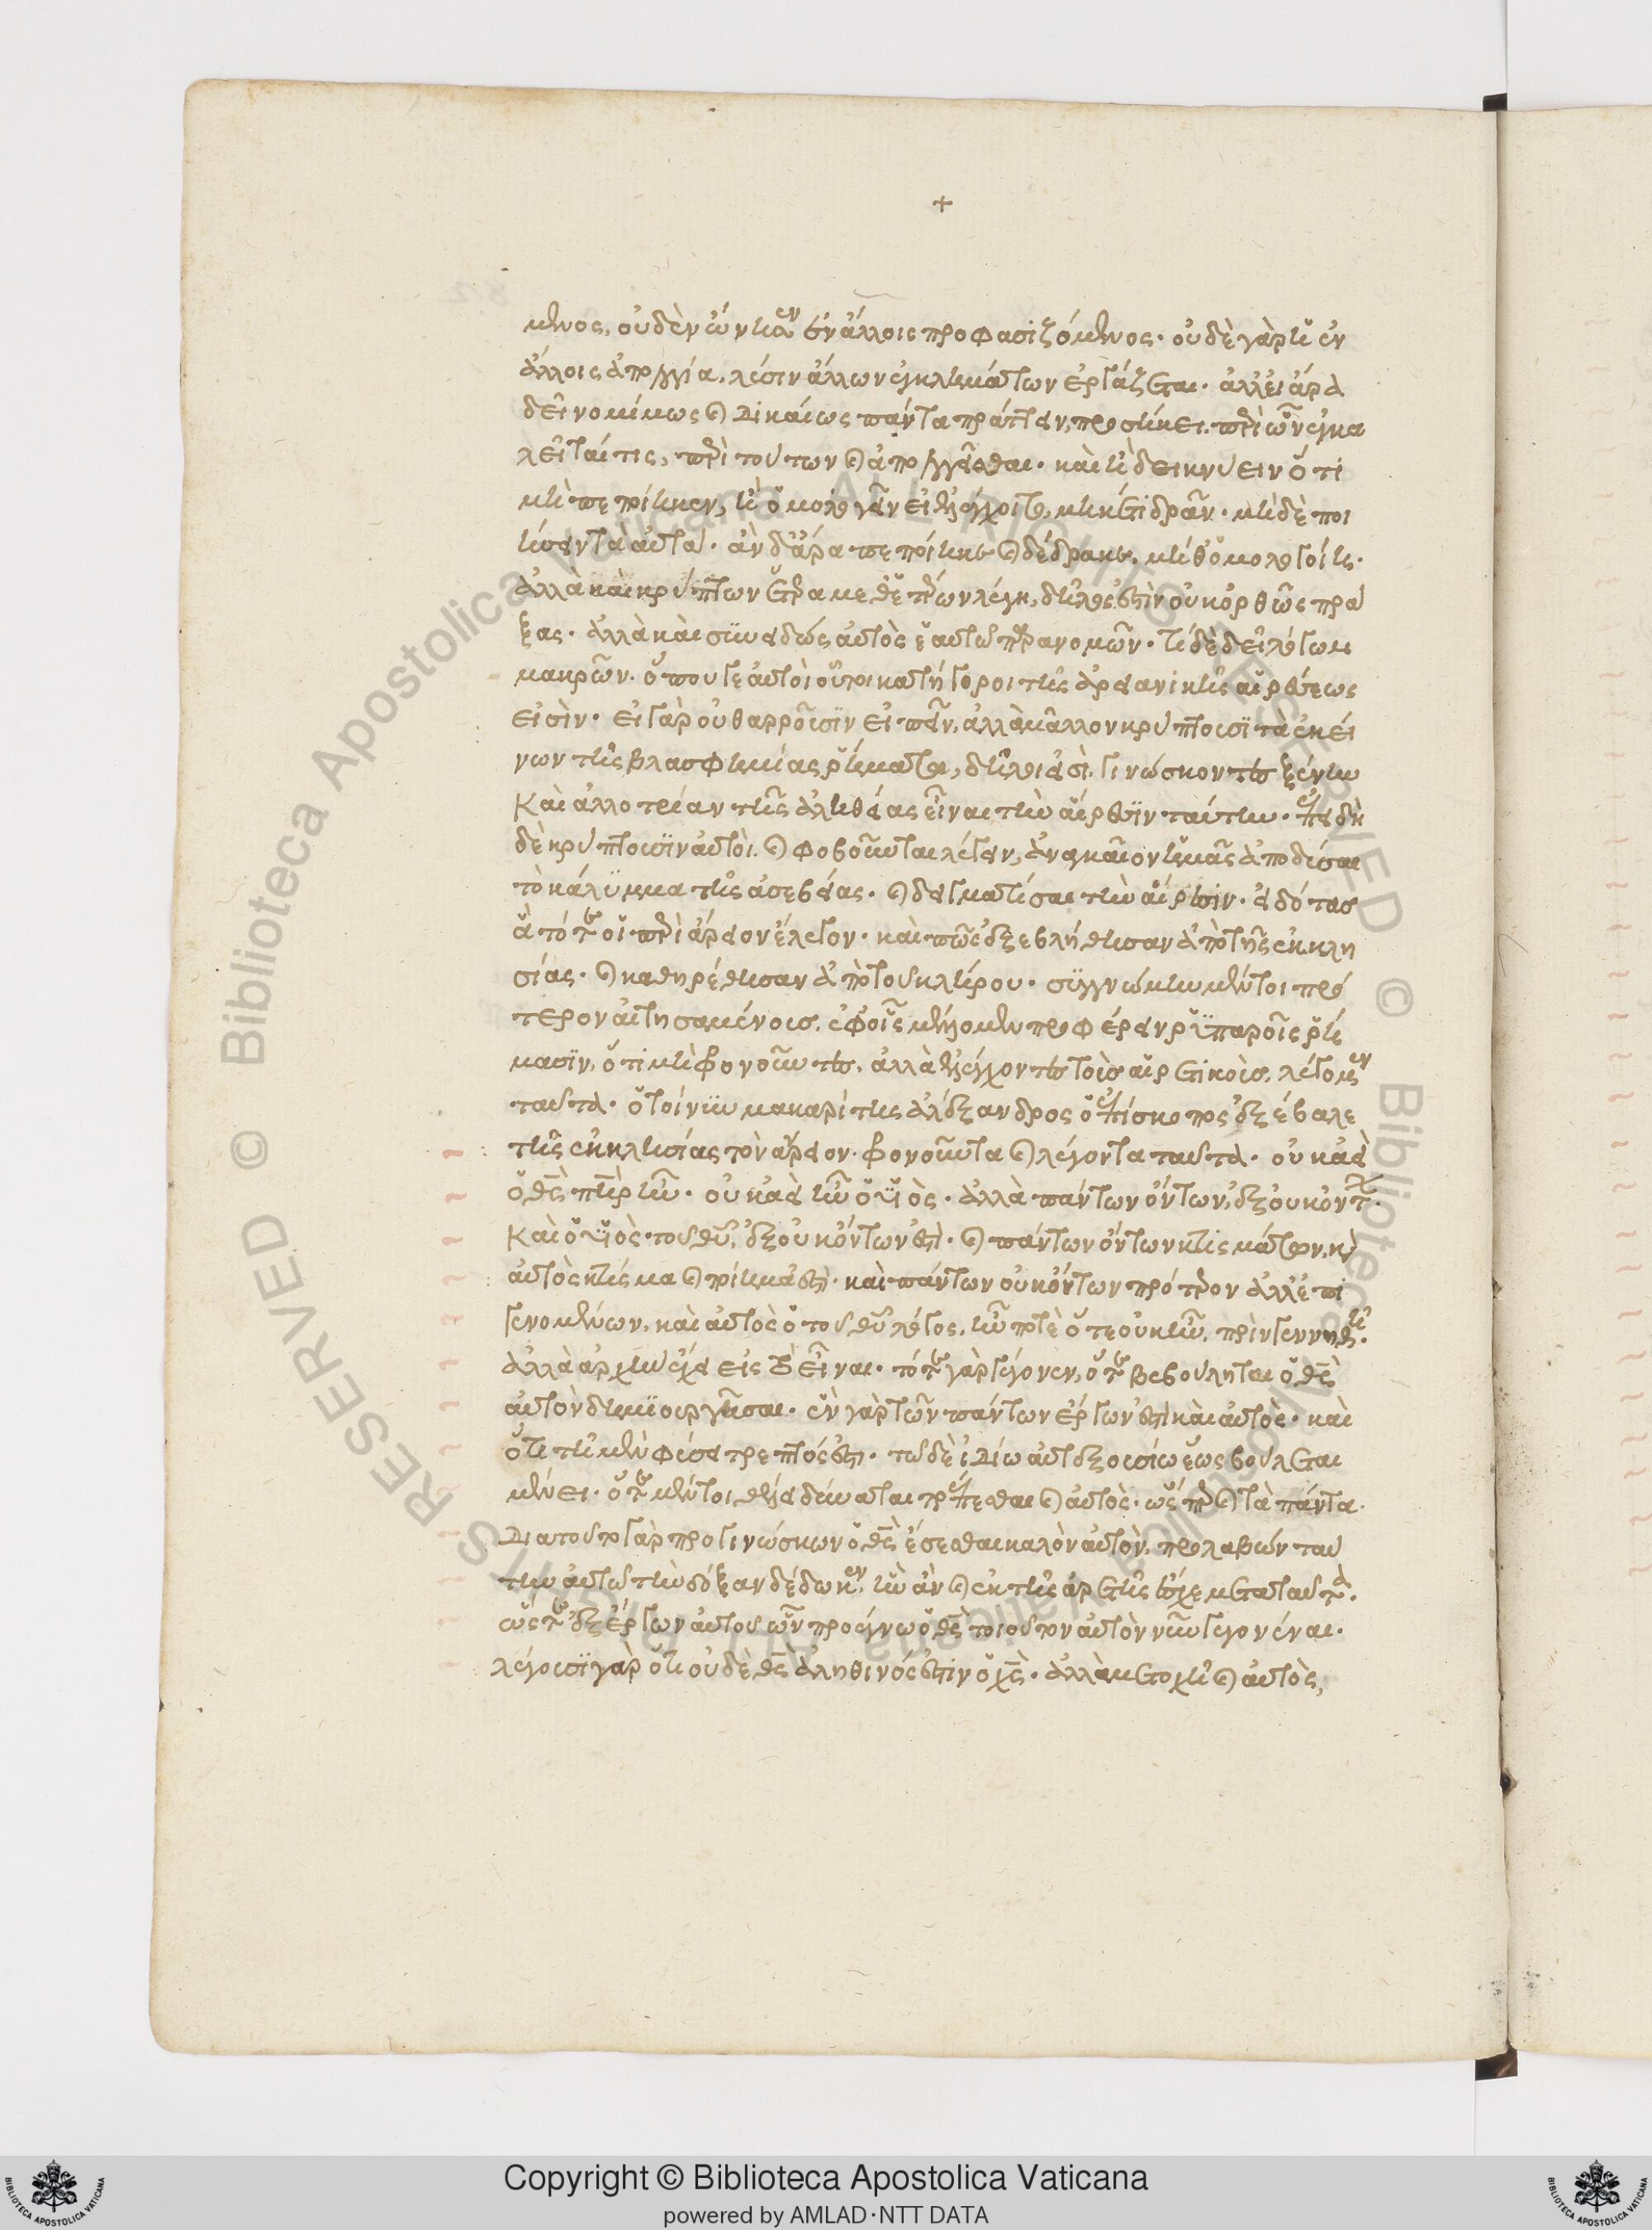 μενος, οὐδὲν ὧν κἂν ἐν ἄλλοις προφασιζόμενος. οὐδὲ γὰρ ἡ ἐν
ἄλλοις ἀπολογία, λύσιν ἄλλων ἐγκλημάτων ἐργάζεται. ἀλλ' εἰ ἄρα
δεῖ νομίμως καὶ δικαίως πάντα πράττειν, προσήκει περὶ ὧν ἐγκα
λεῖταί τις, περὶ τούτων καὶ ἀπολογεῖσθαι. καὶ ἢ δεικνύειν ὅτι
μὴ πεποίηκεν, ἢ ὁμολογεῖν εἰ ἐλέγχοιτο, μηκέτι δρᾶν. μὴ δὲ ποι
ήσειν τὰ αὐτά. ἂν δ' ἄρα πεποίηκε καὶ δέδρακε, μήθ' ὁμολογοίη.
ἀλλὰ καὶ κρύπτων ἕτερα μεθ' ἑτέρων λέγῃ, δῆλός ἐστιν οὐκ ὀρθῶς πρά
ξας. ἀλλὰ καὶ συνειδὼς αὐτὸς ἑαυτῷ παρανομῶν. τί δὲ δεῖ λόγων
μακρῶν. ὅπου γε αὐτοὶ οὗτοι κατήγοροι τῆς ἀρειανικῆς αἱρέσεως
εἰσὶν. εἰ γὰρ οὐ θαρροῦσιν εἰπεῖν, ἀλλὰ μᾶλλον κρύπτουσι τὰ ἐκεί
νων τῆς βλασφημίας ῥήματα, δῆλοί εἰσι γινώσκοντες ξένην
Καὶ ἀλλοτρίαν τῆς ἀληθείας εἶναι τὴν αἵρεσιν ταύτην. ἐπειδὴ
δὲ κρύπτουσιν αὐτοὶ καὶ φοβοῦνται λέγειν, ἀναγκαῖον ἡμᾶς ἀποδῦσαι
τὸ κάλυμμα τῆς ἀσεβείας. καὶ δειγματίσαι τὴν αἵρεσιν. εἰδότας
ἃ τότε οἱ περὶ ἄρειον ἔλεγον. καὶ πῶς ἐξεβλήθησαν ἀπὸ τῆς ἐκκλη
σίας. καὶ καθηρέθησαν ἀπὸ τοῦ κλήρου. συγγνώμην μέντοι πρό
τερον αἰτησαμένοις, ἐφ' οἷς μέλλομεν προφέρειν ῥυπαροῖς ῥή
μασιν, ὅτι μὴ φρονοῦντες, ἀλλὰ ἐλέγχοντες τοὺς αἱρετικοὺς, λέγομεν
ταῦτα. ὁ τοίνυν μακαρίτης ἀλέξανδρος ὁ ἐπίσκοπος ἐξέβαλε
τῆς ἐκκλησίας τὸν ἄρειον. φρονοῦντα καὶ λέγοντα ταῦτα. οὐκ ἀεὶ
ὁ θς πηρ ἦν. οὐκ ἀεὶ ἦν ὁ υἱὸς. ἀλλὰ πάντων ὄντων ἐξ οὐκ ὄντων.
Καὶ ὁ υἱὸς τοῦ θυ, ἐξ οὐκ ὄντων ἐστὶ. καὶ πάντων ὄντων κτισμάτων, καὶ
αὐτὸς κτίσμα καὶ ποίημά ἐστι. καὶ πάντων οὐκ ὄντων πρότερον ἀλλ' ἐπι
γενομένων, καὶ αὐτὸς ὁ τοῦ θυ λόγος, ἦν ποτὲ ὅτε οὐκ ἦν, πρὶν γεννηθῇ.
ἀλλὰ ἀρχὴν ἔχει εἰς τὸ εἶναι. τότε γὰρ γέγονεν, ὅτε βεβούληται ὁ θς
αὐτὸν δημιουργῆσαι. ἓν γὰρ τῶν πάντων ἔργων ἐστὶ καὶ αὐτὸς. καὶ
ὅτι τῇ μὲν φύσει τρεπτός ἐστι. τῷ δὲ ἰδίῳ αὐτεξουσίῳ ἕως βούλεται
μένει. ὅτε μέντοι θέλει δύναται τρέπεσθαι καὶ αὐτὸς. ὥσπερ καὶ τὰ πάντα.
Διατοῦτο γὰρ προγινώσκων ὁ θς ἔσεσθαι καλὸν αὐτὸν, προλαβὼν ταύ
την αὐτῷ τὴν δόξαν δέδωκεν, ἣν ἂν καὶ ἐκ τῆς ἀρετῆς ἔσχε μετὰ ταῦτα.
ὥστε ἐξ ἔργων αὐτοῦ ὧν προέγνω ὁ θς τοιοῦτον αὐτὸν νῦν γεγονέναι.
λέγουσι γὰρ ὅτι οὐδὲ θς ἀληθινός ἐστιν ὁ χς. ἀλλὰ μετοχῇ καὶ αὐτὸς,
Copyright © Biblioteca Apostolica Vaticana
powered by AMLAD·NTT DATA